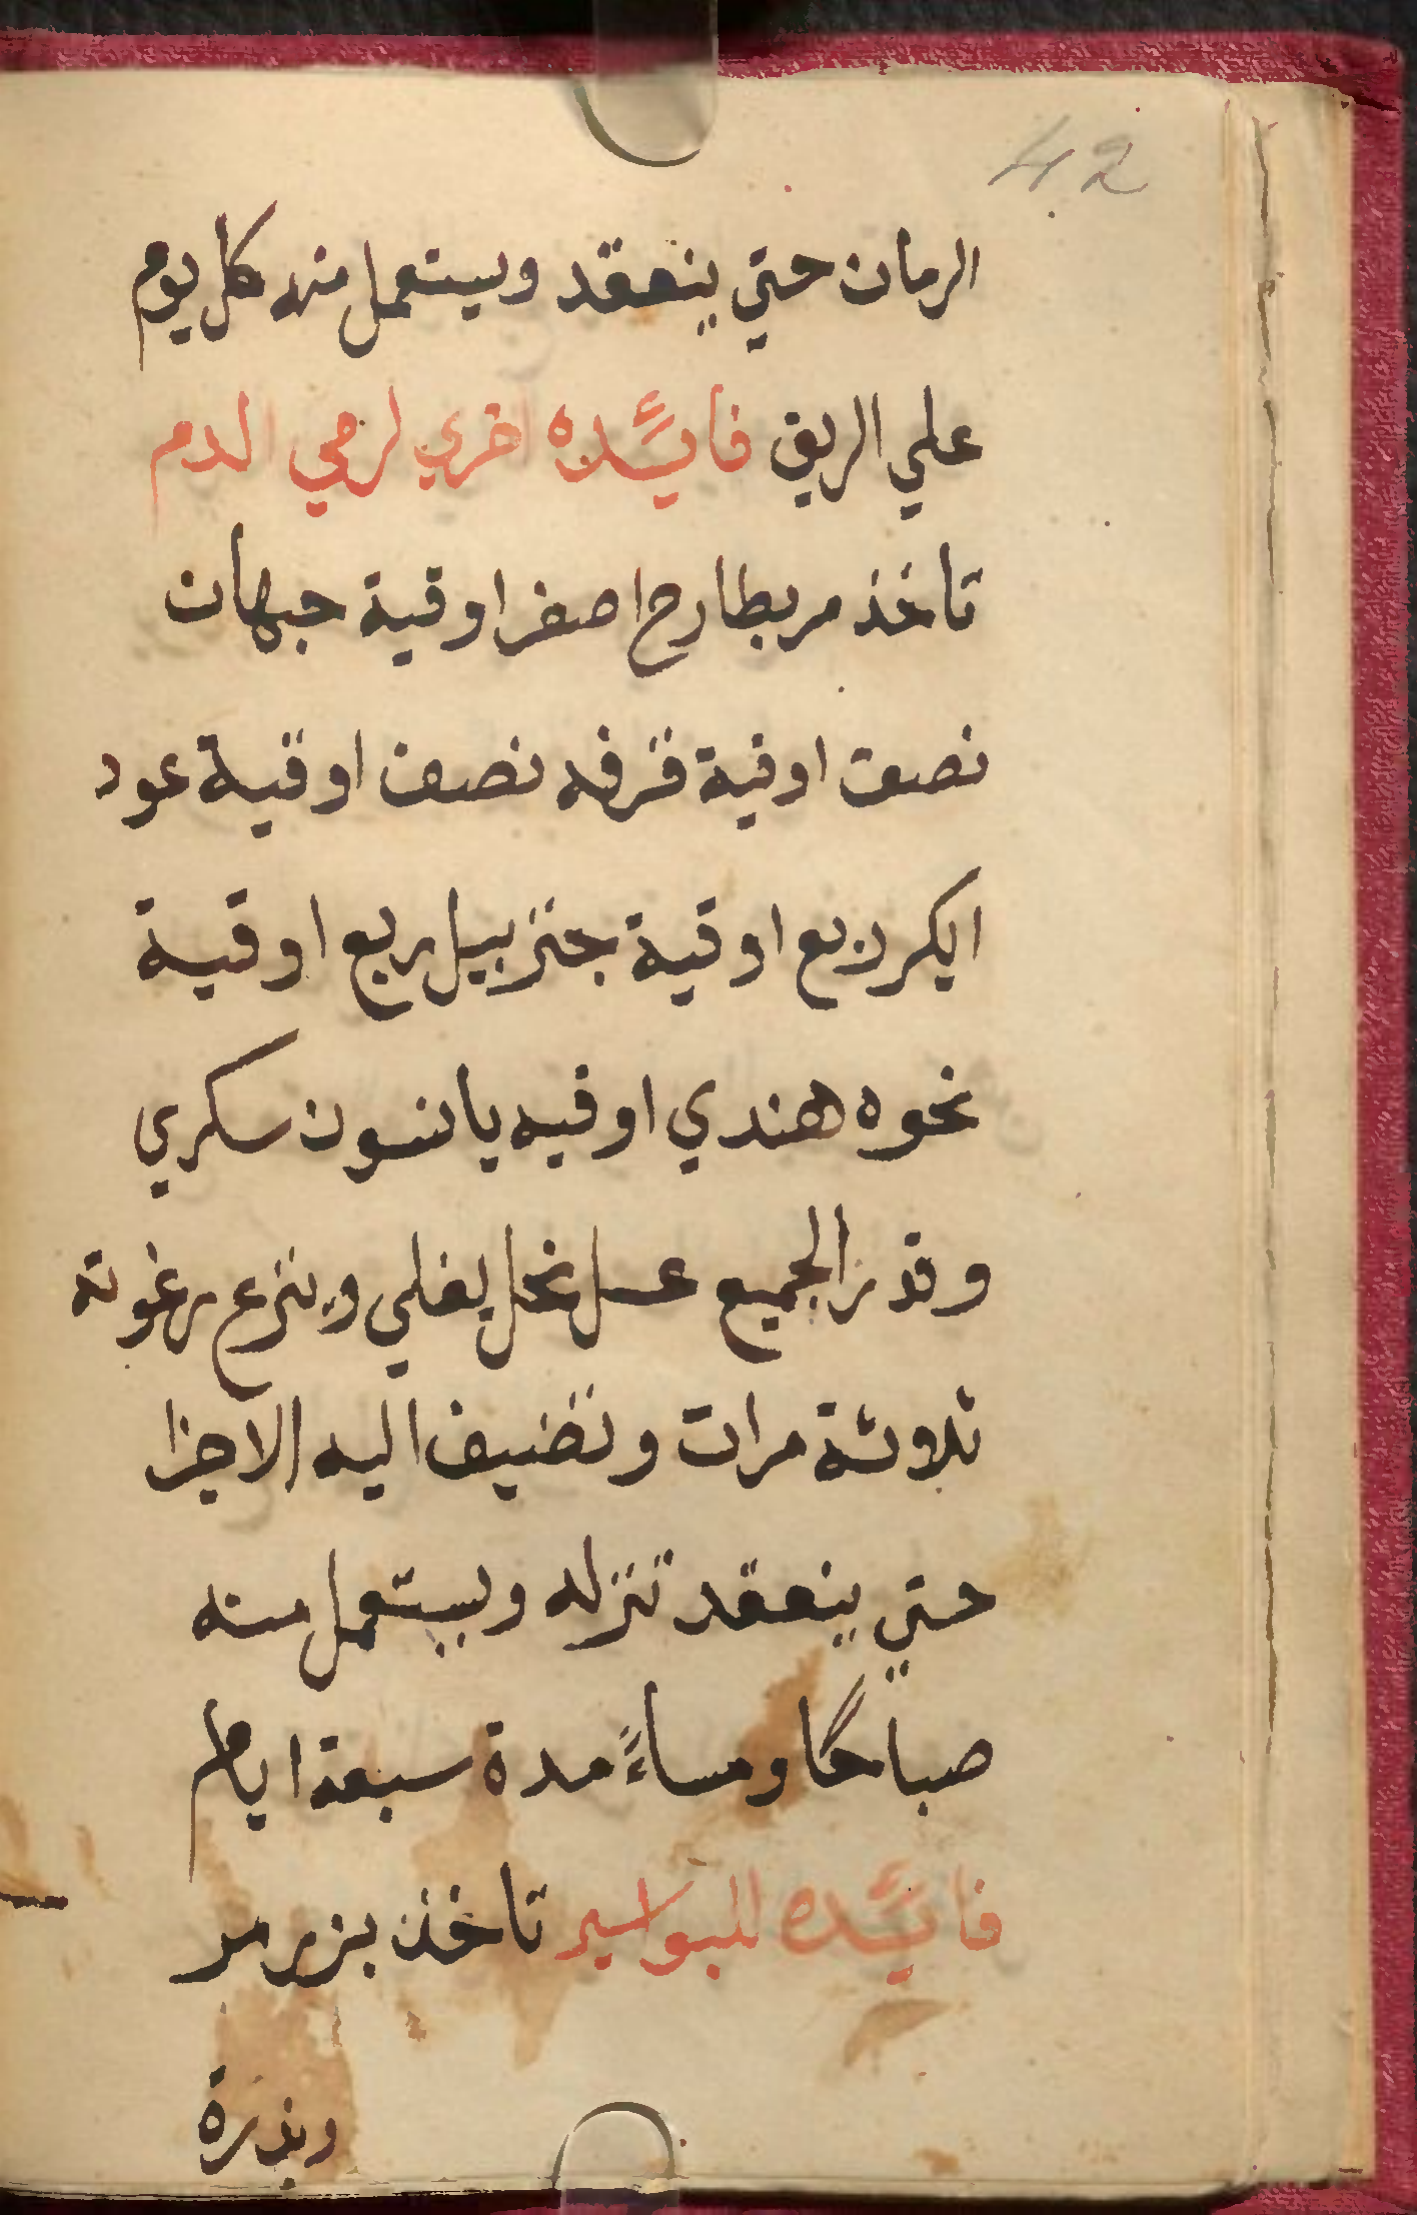 42
الرمان حتي ينعقد ويستعمل منه كل يوم
علي الريق فائده اخري لرمي الدم
تاخذ مر بطارخ اصفر اوقية حبهان
نصف اوقية قرفه نصف اوقية عود
ايكر ربع اوقية جنزبيل ربع اوقية
نخوه هندي اوقيه يانسون سكري
وقدر الجميع عسل نحل يغلي وينزع رغوته
ثلاوثة مرات وتضيف اليه الاجزا
حتي ينعقد تنزله ويستعمل منه
صباحًا ومساءً مدة سبعة ايام
فائده للبواسير تاخذ بزر مر
وبذرة